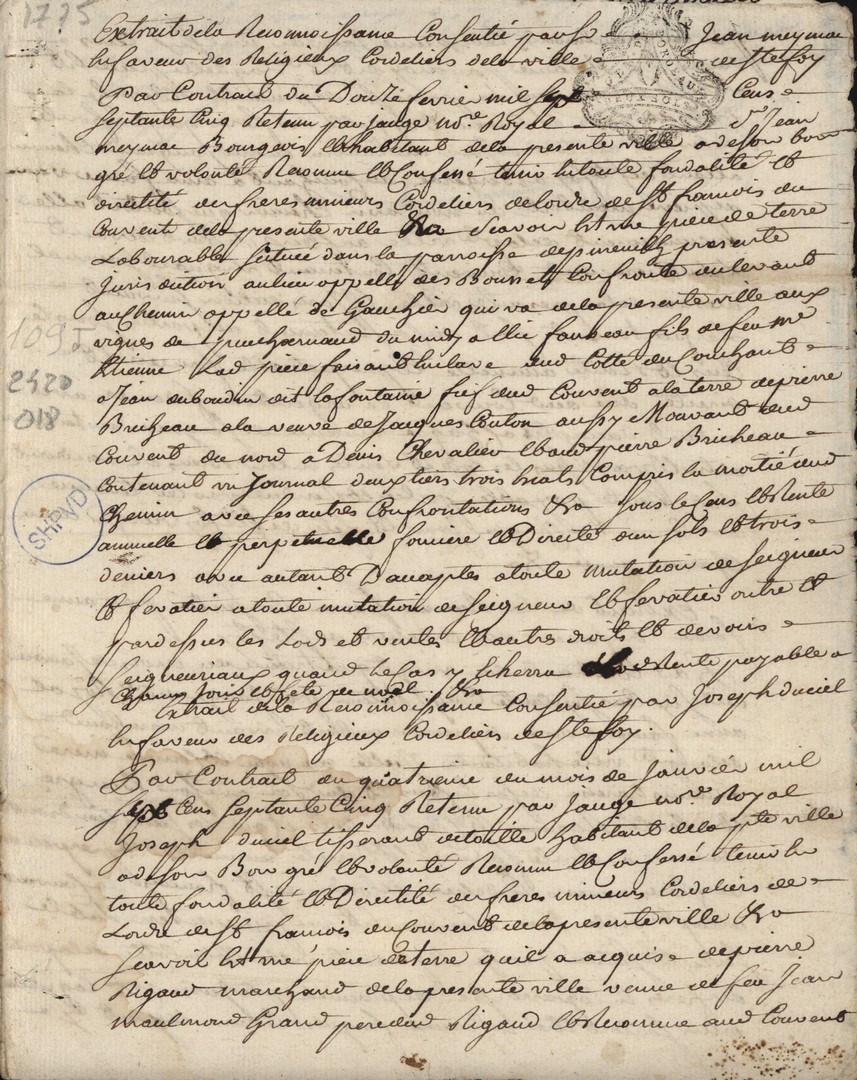 1775
Extrait de la Reconnoissance Consentie par sr Jean meymac
En faveur des Religieux Cordeliers de la ville de Ste foy
Par Contrait du Douze fevrier mil sept Cens
septante Cinq Retenu par Jauge nore Royal sr Jean
meymac Bourgeois Et habitant de la presente ville a de son bon
gré Et volonté Reconnu Et Confessé tenir En toute fondalité Et
directité des freres mineurs Cordeliers de lordre de St francois du
Couvent de la presente ville Scavoir Est une piece de terre
Labourable scituée dans la parroisse de pineuilh presente
Jurisdiction au lieu appellé des Boussets Confronte du levant
au Chemin appellé de Gauthier qui va de la presente ville aux
vignes de puicharnaud du midy a Elie fauveau fils de feu me
Etienne Lad piece faisant Enclave aud Cotté du Couchant
a Jean duboudin dit lafontaine fief dud Couvent a la terre de pierre
Bricheau a la veuve de Jacques Couton aussy Mouvant dud
Couvent du nord a Denis Chevalier Et aud pierre Bricheau
Contenant un Journal deux tiers trois Compris la moitié dud
Chemin avec ses autres Confrontations &a sous le Cens Et Rente
annuelle Et perpetuelle fonciere Et Directe dun sols Et trois
deniers avec autant Dacaptes a toute mutation de seigneur
Et fevatier a toute mutation de seigneur Et fevatier outre Et
pardessus les Lods et ventes Et autres droits Et devoirs
seigneuriaux quand le Cas y Echerra rente payable a
Chacun Jour Et fete de noel. &a
Extrait de la Reconnoissance Consentie par Joseph duciel
En faveur des Religieux Cordeliers de Ste foy.
Par Contrait du quatrieme du mois de Janvier mil
sept Cens septante Cinq Retenu par Jauge nore Royal
Joseph duciel tisserant de toille habitant de la pte ville
a de son Bon gré Et volonté Reconnu Et Confessé tenir En
toute fondalité Et Directité des freres mineurs Cordeliers de
Lordre de St francois du Couvent de la presente ville &a
scavoir Est une piece de terre quil a acquise de pierre
Rigaud marchand de la presente ville venue de feu Jean
maulmond Grand pere dud Rigaud Et Reconnue aud Couvent
1095
2420
018
SHPVD